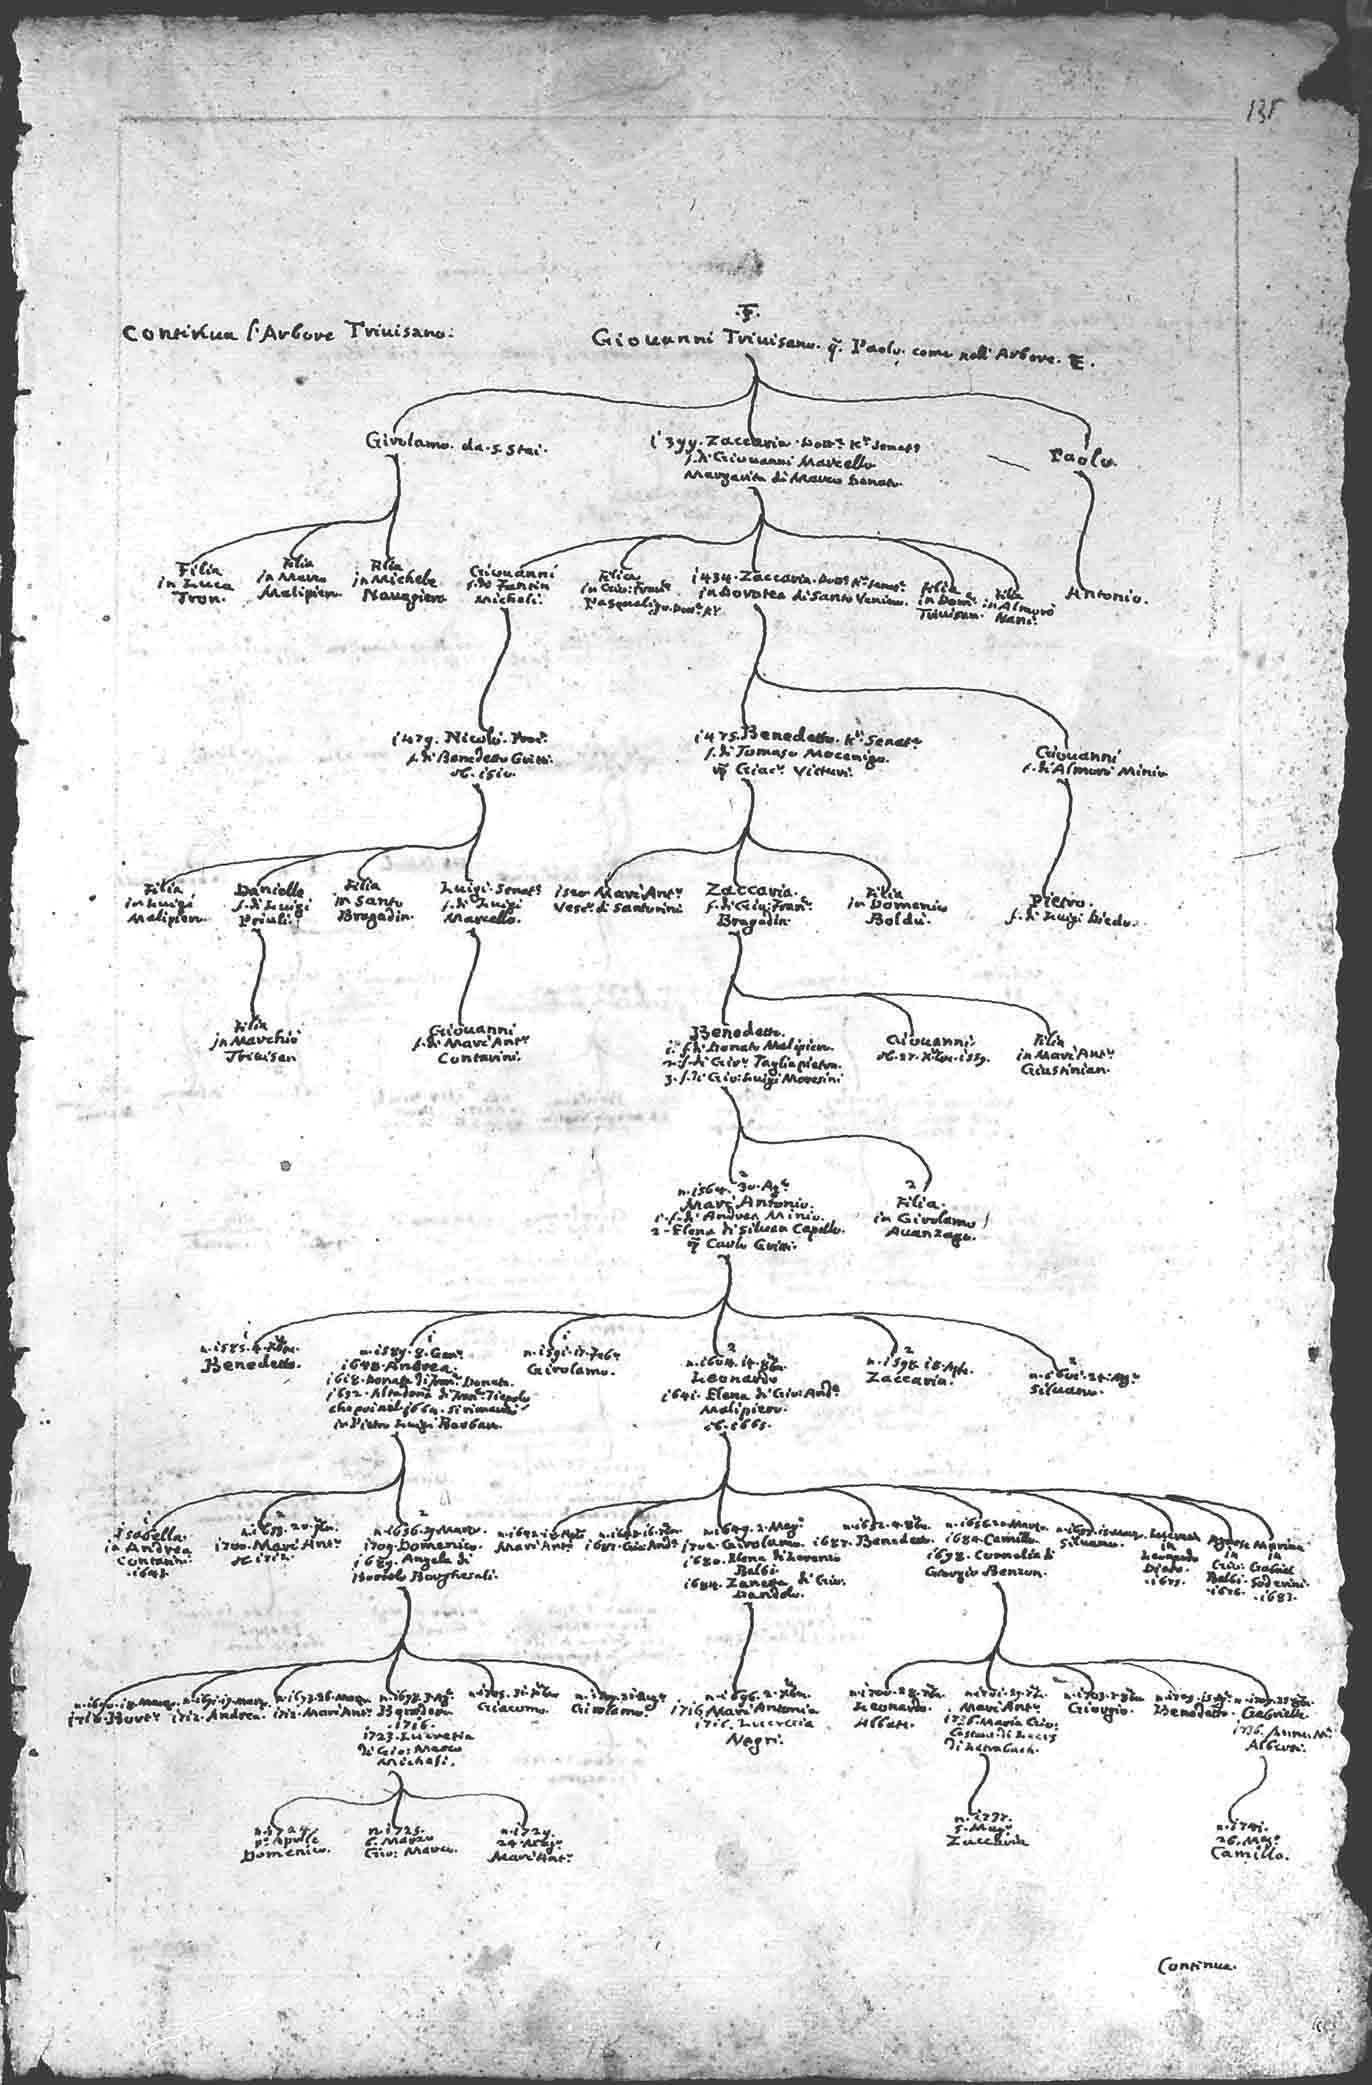 135
Continua l'Arbore Trivisano.
F.
Giovanni Trivisano. q. Paolo, come nell'Arbore. E.
Girolamo da S. Stai.
1399. Zaccaria. Dott.r K.r Senat.r
f. di Giovanni Marcello
Margarita di Marco Donato.
Paolo.
Filia
in Luca
Tron.
Filia
in Marco
Malipiero.
Filia
in Michele
Navagiero
Giovanni
f. di Fantin
Michiel.
Filia
in Gio: Fran.co
Pasqualigo. Dott.r K.r
1434. Zaccaria. Dott.r K.r Senat.r
in Dorotea di Santo Venier.
Filia
in Dom.co
Trivisan.
Filia
in Almorò
Nani.
Antonio.
1479. Nicolò. Proc.r
f. di Benedetto Gritti.
ob. 1510.
1475. Benedetto. K.r Senat.r
f. di Tomaso Mocenigo.
Giac.o Vitturi.
Giovanni
f. di Almorò Minio
Filia
in Luigi
Malipiero.
Daniello
f. di Luigi
Priuli.
Filia
in Santo
Bragadin.
Luigi. Senat.r
f. di Luigi
Marcello.
1520. Marc'Ant.o
Vesc.o di Santorini
Zaccaria.
f. di Gio: Fran.co
Bragadin.
Filia
in Domenico
Boldù.
Pietro.
f. di Luigi Diedo.
Filia
in Marchiò
Trivisan
Giovanni
f. di Marc'Ant.o
Contarini.
Benedetto.
1. f. di Donato Malipiero.
2. f. di Giro.mo Tagliapietra.
3. f. di Gio: Luigi Moresini
Giovanni.
ob. 27. Xbre. 1559.
Filia
in Marc'Ant.o
Giustinian.
2
n. 1564. 30. Ag.o
Marc'Antonio.
1. f. di Andrea Minio.
2. Elena di Silvan Capello.
Carlo Gritti.
2
Filia.
in Girolamo
Avanzago.
1
n. 1585. 4.
Benedetto.
1
n. 1589. 8. Gen.o
1648. Andrea.
1618. Donata di Fran.co Donato.
1652. di Fran.co Tiepolo
che poi nel 1664. si rimaritò
in Pietro Luigi Barbaro.
1
n. 1591. 17. Feb.o
Girolamo.
2
n. 1604. 14. 8bre.
Leonardo
1641. Elena di Gio: And.a
Malipiero.
ob. 1665.
2
n. 1598. 18. Apr.
Zaccaria.
2
n. 1601. 24. Ag.o
Silvano.
1
Isabella.
in Andrea
Contarini.
1643.
2
n. 1653. 20.
1700. Marc'Ant.o
ob. 1712.
2
n. 1656. 9. Marzo.
1709. Domenico.
1689. Angela di
Bortolo Borghesali.
Marc'Ant.o
1687. Gio: And.a
n. 1649. 2. Mag.o
1702. Girolamo.
1680. Elena di Lorenzo
Balbi.
1684. Zanetta di Gio:
Dandolo.
n. 1652. 4. 8bre.
1687. Benedetto.
n. 1656. 20. Marzo.
1684. Camillo.
1698. Cornelia di
Giorgio Benzon.
Silvano.
Lucrezia
in
Leonardo
Diedo.
1675.
Agnese
in
Gio:
Balbi.
1676.
Marina
in
Gabriel
Soderini.
1683.
n. 1690. 18. Marzo.
1716. Bort.o
n. 1691. 17. Marzo.
1712. Andrea.
n. 1693. 26. Marzo.
1712. Marc'Ant.o
n. 1698. 3. Ag.o
Bortolo
1716.
1723. Lucretia
di Gio: Marco
Michiel.
n. 1705. 31.
Giacomo.
Girolamo.
n. 1696. 2. Xbre.
1716. Marc'Antonio
1716. Lucrecia
Negri.
n. 1700. 28.
Leonardo.
Abbate.
Marc'Ant.o
1736. Maria Gio:
n. 1703.
Giorgio.
Benedetto.
Gabriele
1736. Anna M.a
Alberti.
n. 1724.
p.o Aprile
Domenico.
n. 1725.
6. Marzo
Gio: Marco.
n. 1729.
24. Mag.o
Marc'Ant.o
n. 1737.
5. Mag.o
Zaccaria
n. 1741.
26. Mag.o
Camillo.
Continua.